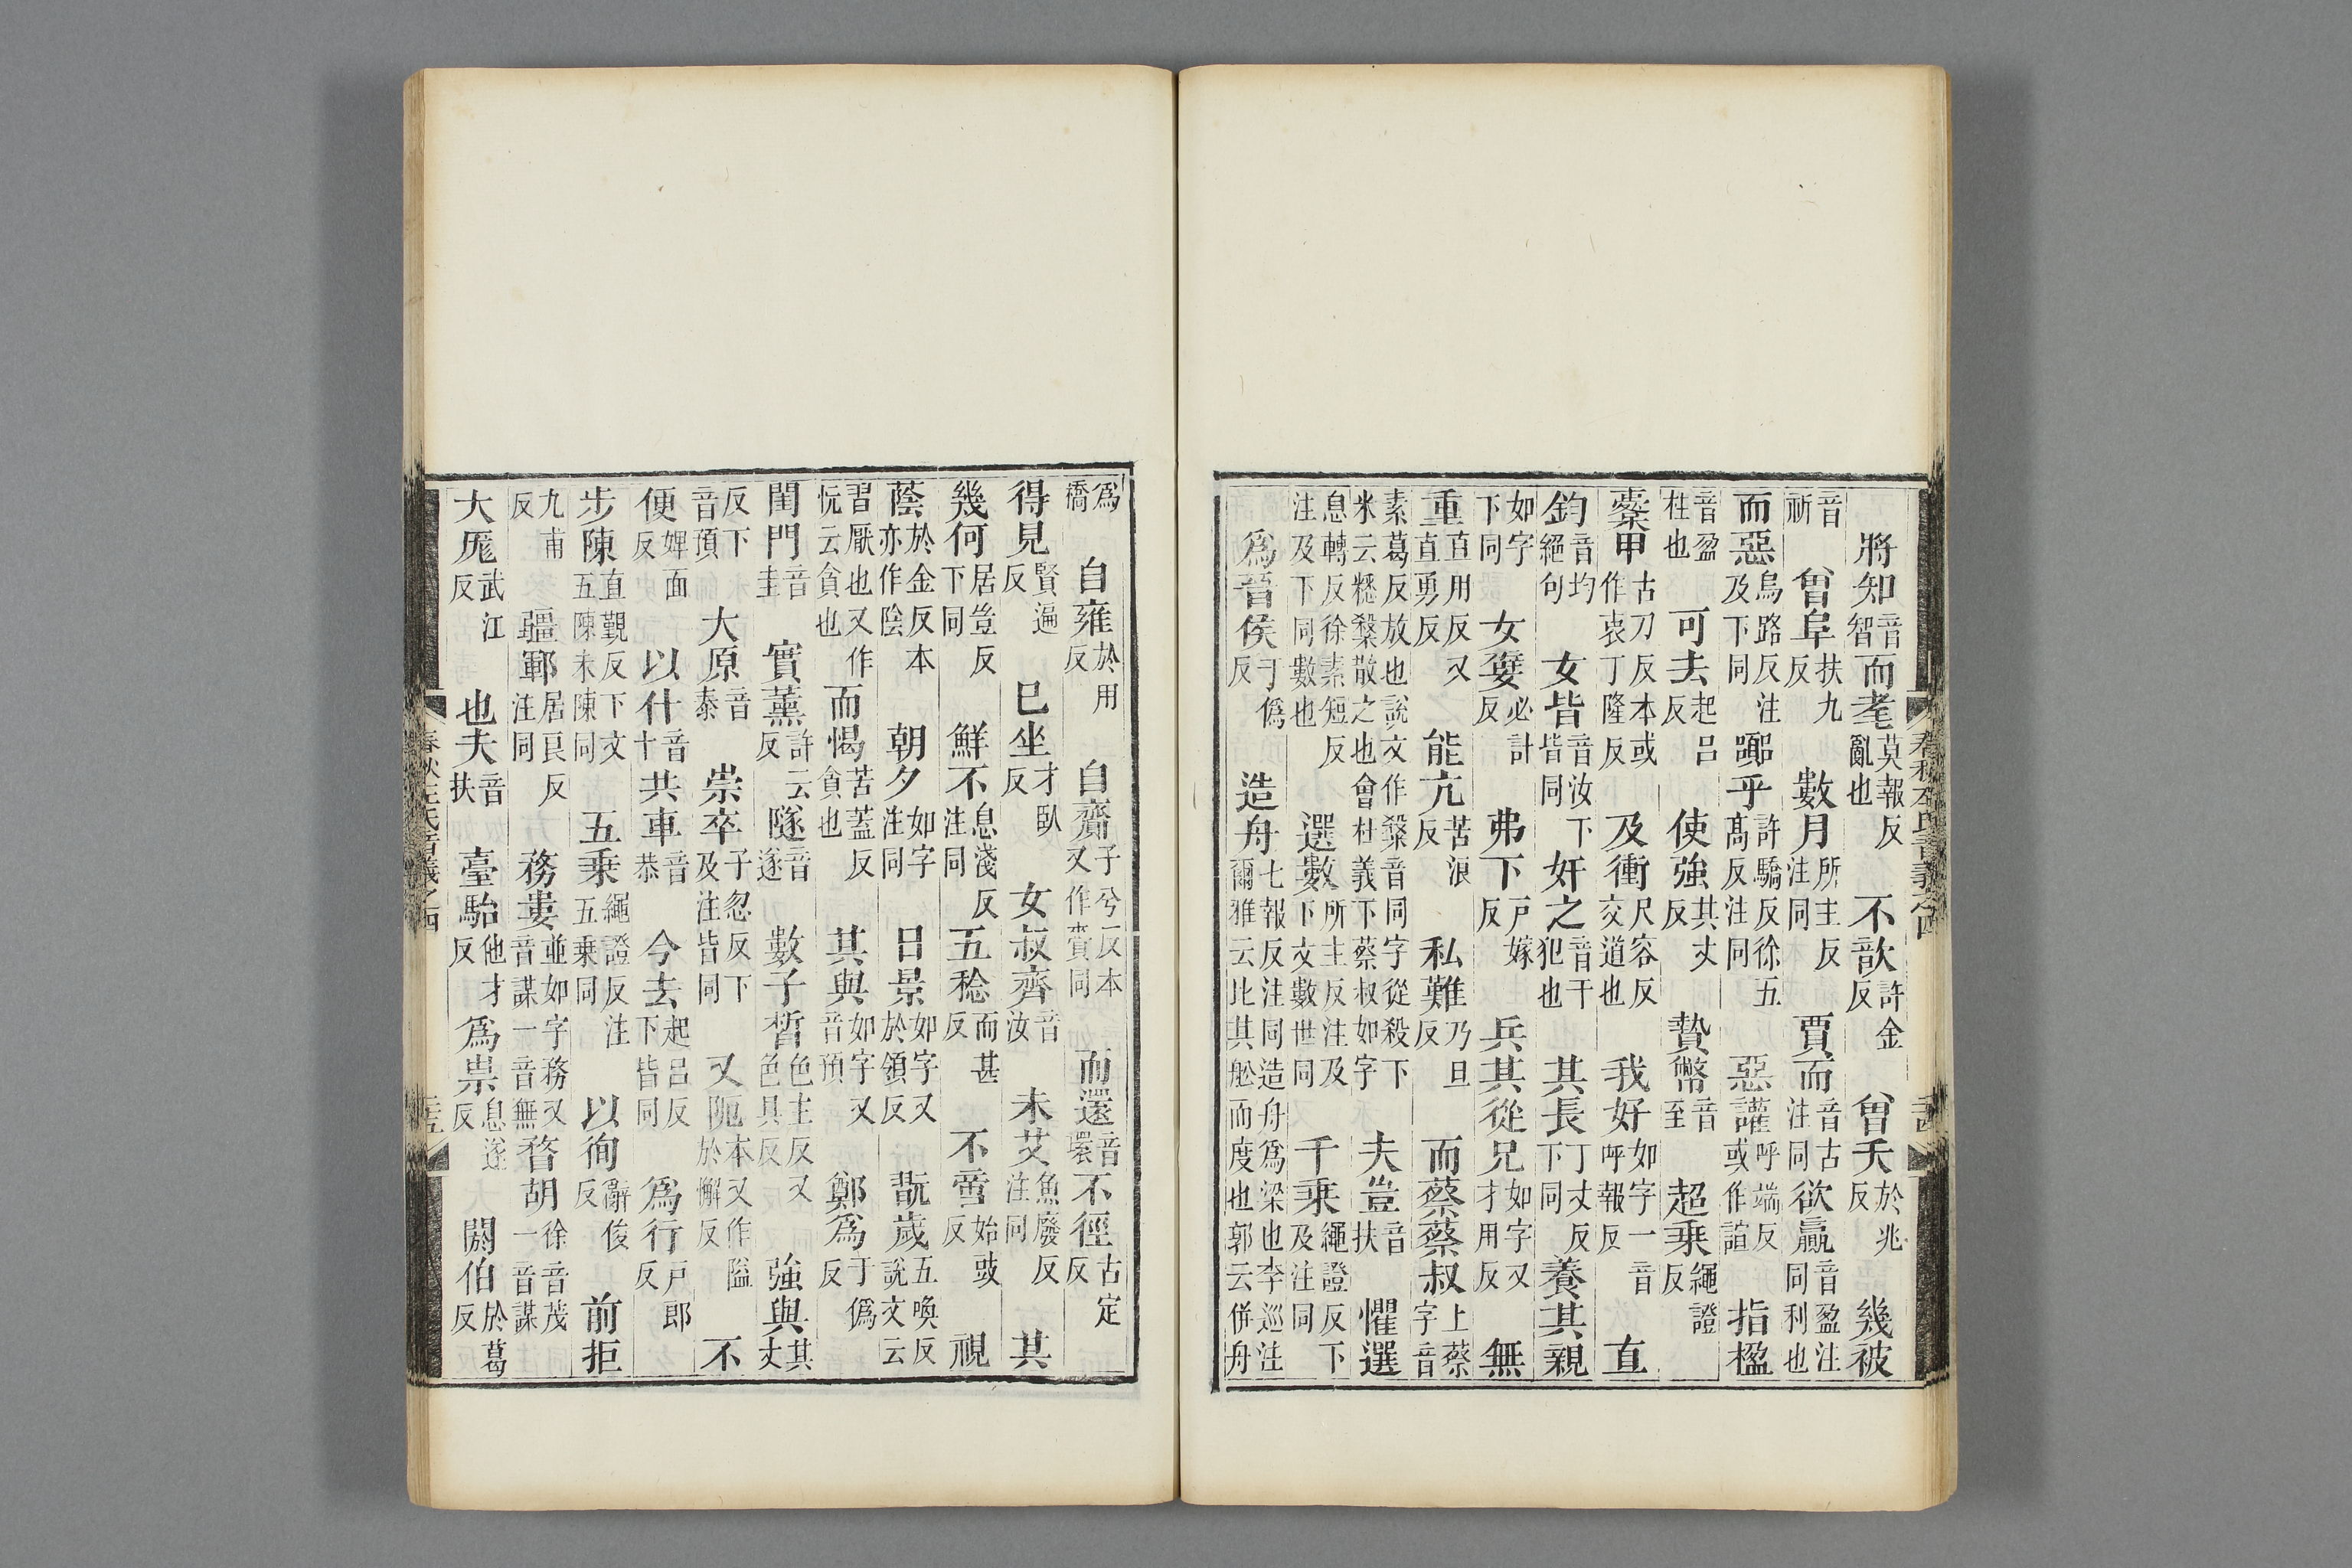 將知音智而耄莫報反亂也　不歆許金反　曾夭於兆反　幾被
音祈　曾阜扶九反　數月所主反注同　賈而音古注同欲贏音盈注同利也
而惡烏路反注及下同　嚻乎許驕反徐五高反注同　惡讙呼端反或作諠　指楹
音盈柱也　可去起呂反　使強其丈反　贄幣音至　超乘繩證反
櫜甲古刀反本或作衷丁隆反　及衝尺容反交道也　我好如字一音呼報反　直
鈞音均絕句　女皆音汝下皆同　奸之音干犯也　其長丁丈反下同　養其親
如字下同　女嬖必計反　弗下戸嫁反　兵其從兄如字又才用反　無
重直用反又直勇反　能亢苦浪反　私難乃旦反　而蔡蔡叔上蔡字音
素葛反放也說文作𥻦音同字從殺下米云䊝𥻦散之也會杜義下蔡叔如字　夫豈音扶　懼選
息轉反徐素短反注及下同數也　選數所主反注及下文數世同　千乘繩證反下及注同
爲晉侯于僞反　造舟七報反注同造舟爲梁也李巡注爾雅云比其舩而度也郭云併舟
爲橋　自雍於用反　自齎子兮反本又作賫同　而還音環不徑古定反
得見賢遍反　已坐才臥反　女叔齊音汝　未艾魚廢反注同　其
幾何居豈反下同　鮮不息淺反注同　五稔而甚反　不啻始豉反　視
蔭於金反本亦作陰　朝夕如字注同　日景如字又於領反　翫歲五喚反說文云
習厭也又作忨云貪也　而愒苦蓋反貪也　其與如字又音預　鄭爲于僞反
閨門音圭　實薰許云反　隧音遂　數子晳色主反又色具反　強與其丈
反下音預　大原音泰　崇卒子忽反下及注皆同　又阨本又作隘於懈反　不
便婢面反　以什音十　共車音恭　今去起呂反下皆同　爲行戸郎反
步陳直覲反下文五陳未陳同　五乘繩證反注五乘同　以徇辭俊反　前拒
九甫反　疆鄆居良反注同　務婁並如字務又音謀一音無　瞀胡徐音茂一音謀
大厖武江反　也夫音扶　臺駘他才反　爲祟息遂反　閼伯於葛反
春秋左氏音義之四